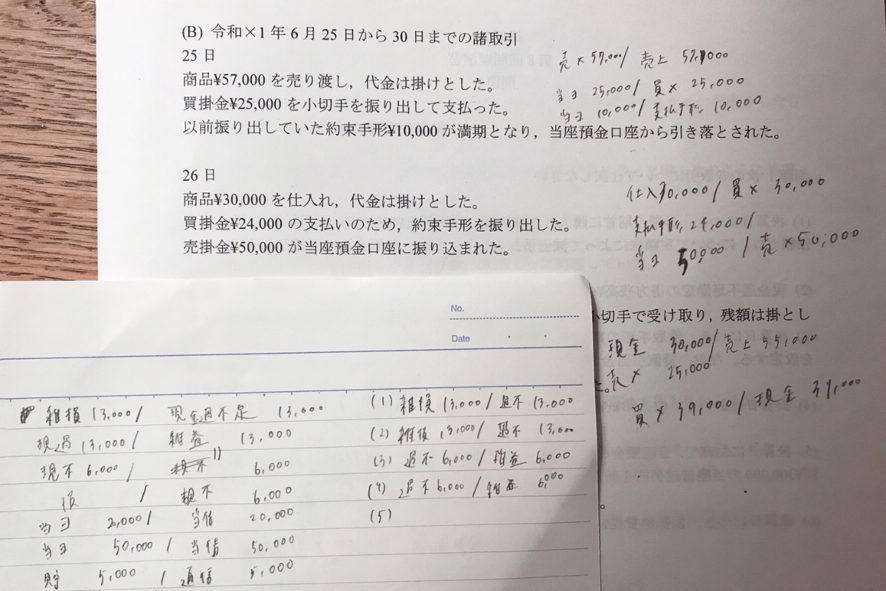 (B) 令和×1年6月25日から30日までの諸取引
25日
売× 57,000/ 売上 57,000
商品¥57,000を売り渡し，代金は掛けとした。
当ヨ 25,000/ 買× 25,000
買掛金¥25,000を小切手を振り出して支払った。
当ヨ 10,000/ 支払手形 10,000
以前振り出していた約束手形¥10,000が満期となり，当座預金口座から引き落とされた。
26日
仕入30,000/ 買× 30,000
商品¥30,000を仕入れ，代金は掛けとした。
支払手形 24,000/
買掛金¥24,000の支払いのため，約束手形を振り出した。
当ヨ 50,000 / 売×50,000
売掛金¥50,000が当座預金口座に振り込まれた。
小切手で受け取り，残額は掛とし
現金 30,000/ 売上 55,000
売× 25,000
買× 39,000/ 現金 39,000
No.
Date
雑損 13,000/ 現金過不足 13,000
現過 13,000/ 雑益 13,000
現不 6,000/ 6,000
/ 現不 6,000
当ヨ 2,000/ 当借 20,000
当ヨ 50,000 / 当借 50,000
貯 5,000 / 通信 5,000
(1) 雑損 13,000/ 過不 13,000
(2) 雑損 13,000/ 過不 13,000
(3) 過不 6,000/ 雑益 6,000
(4) 過不 6,000/ 雑益 6,000
(5)